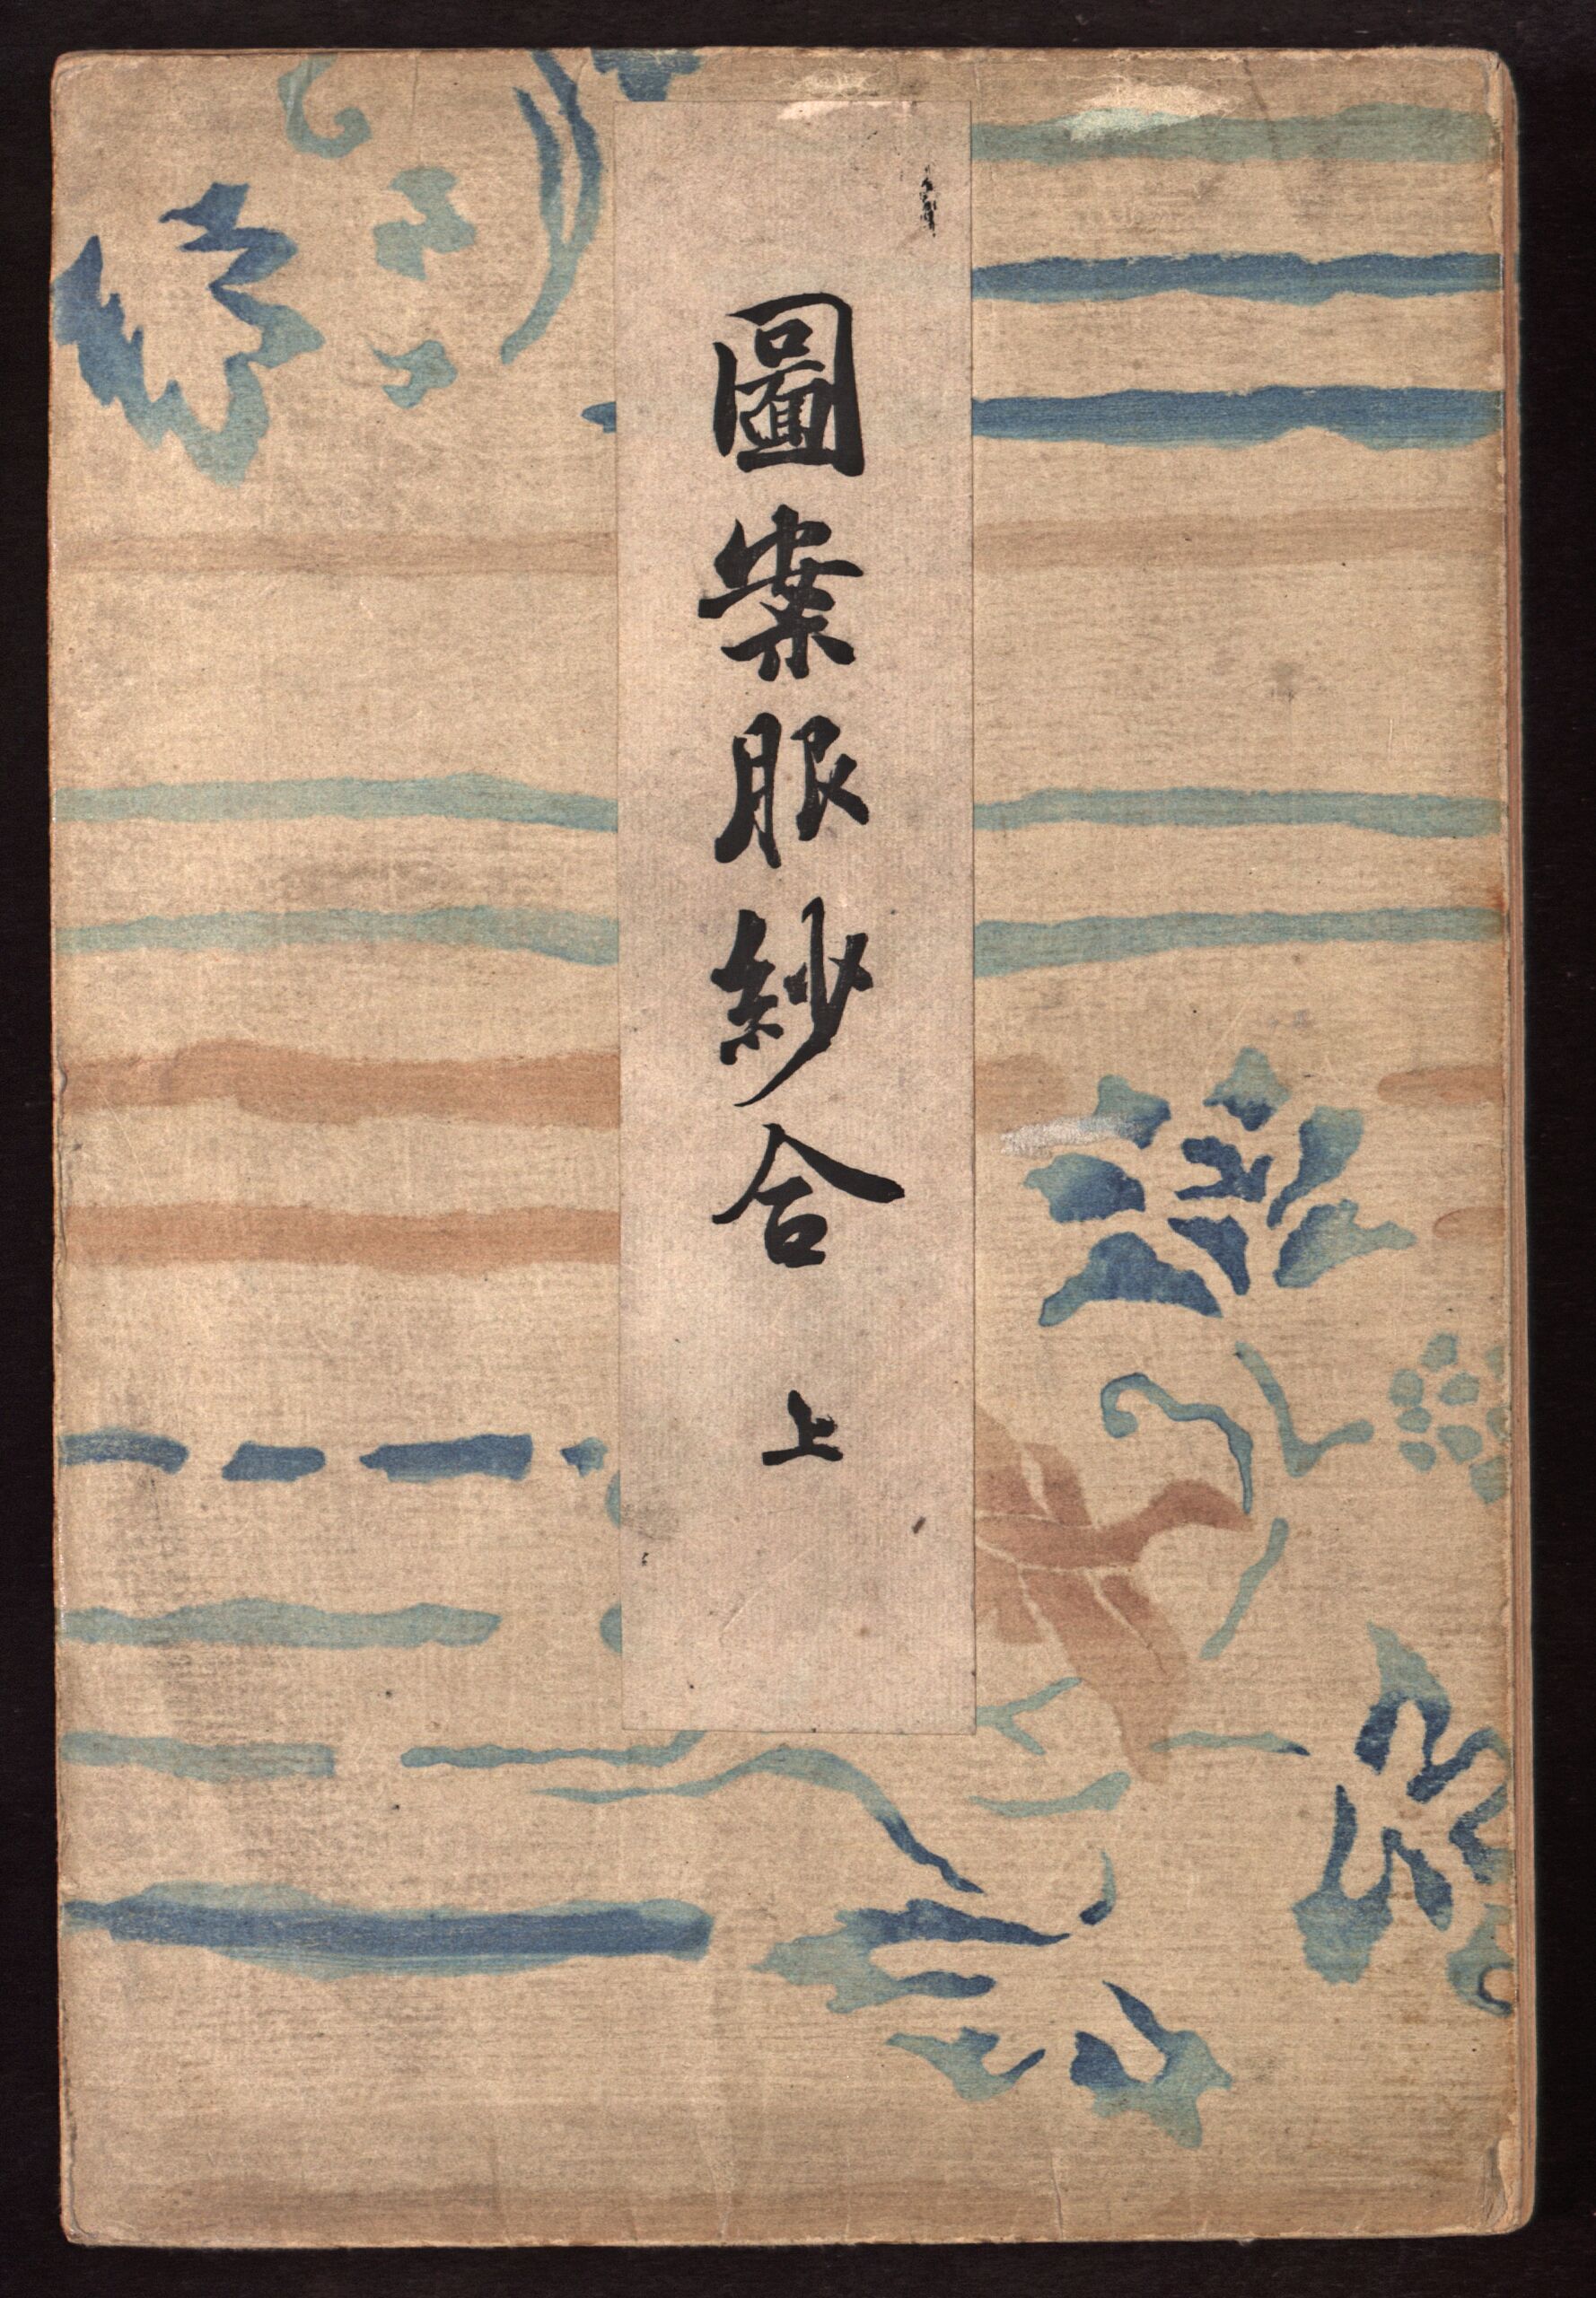 圖案服紗合 上